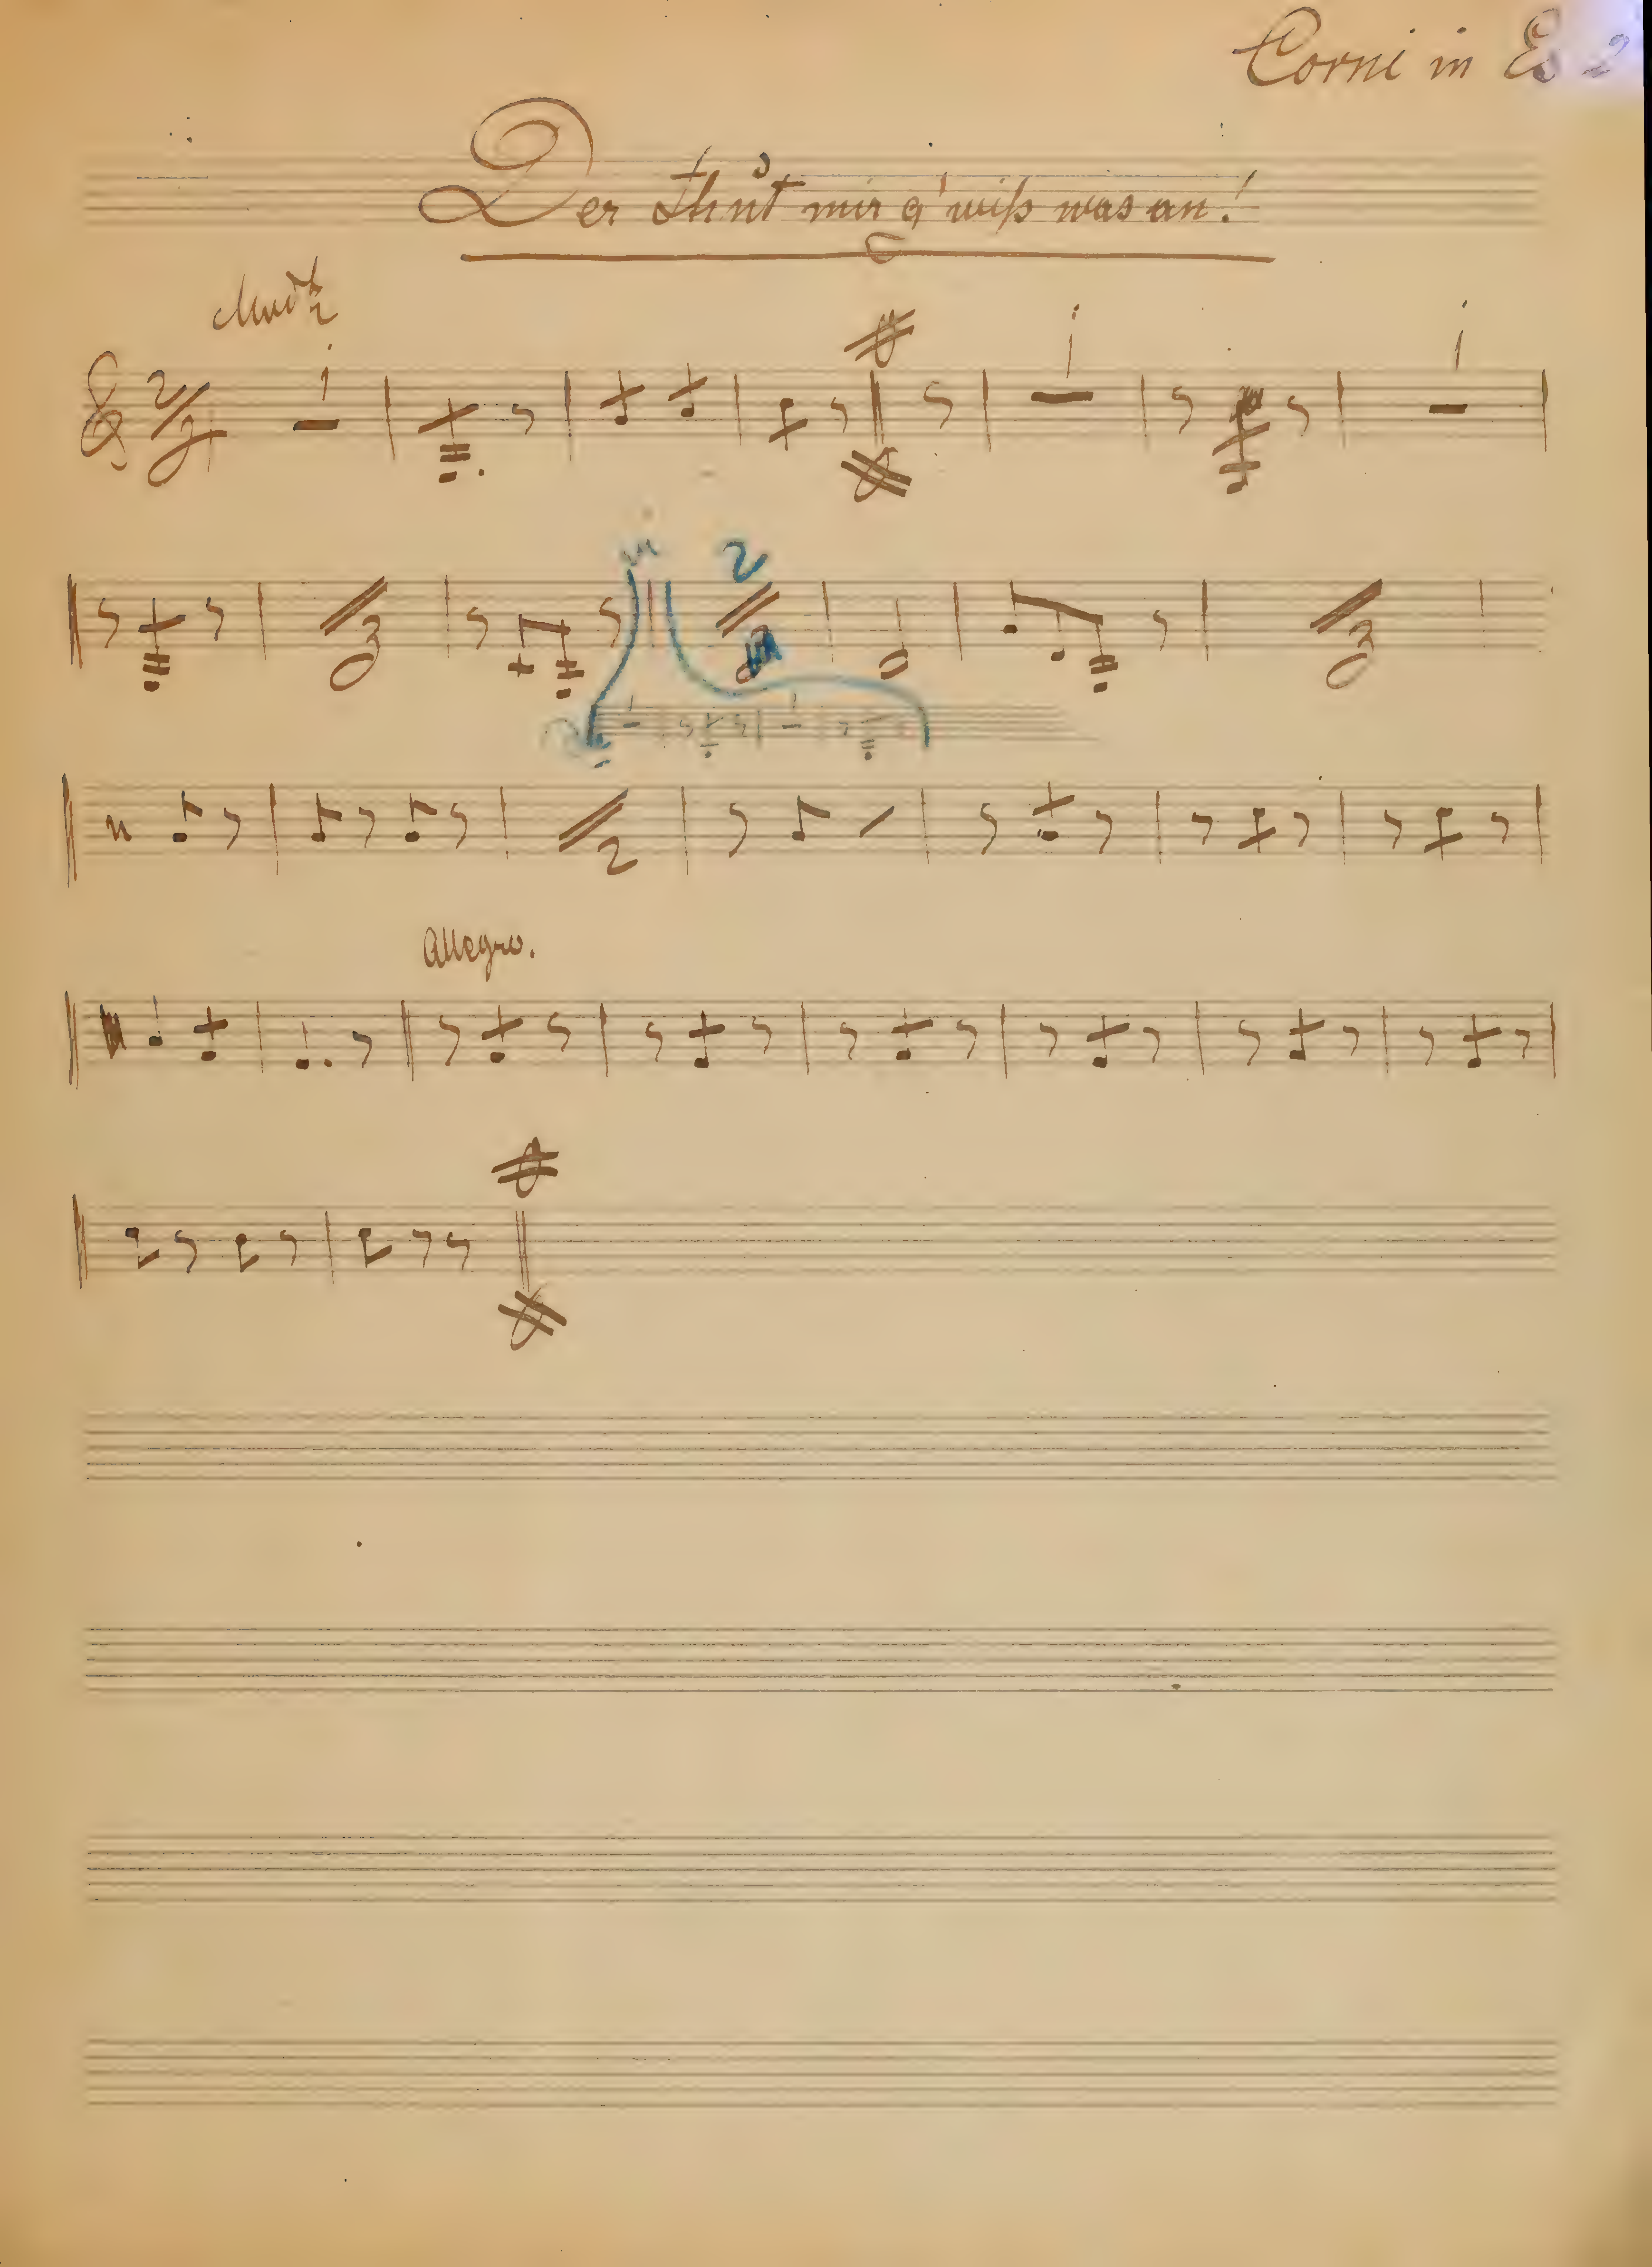 Corni in Es 2
Der Thut mir g'wiß was an!
2
Allegro.